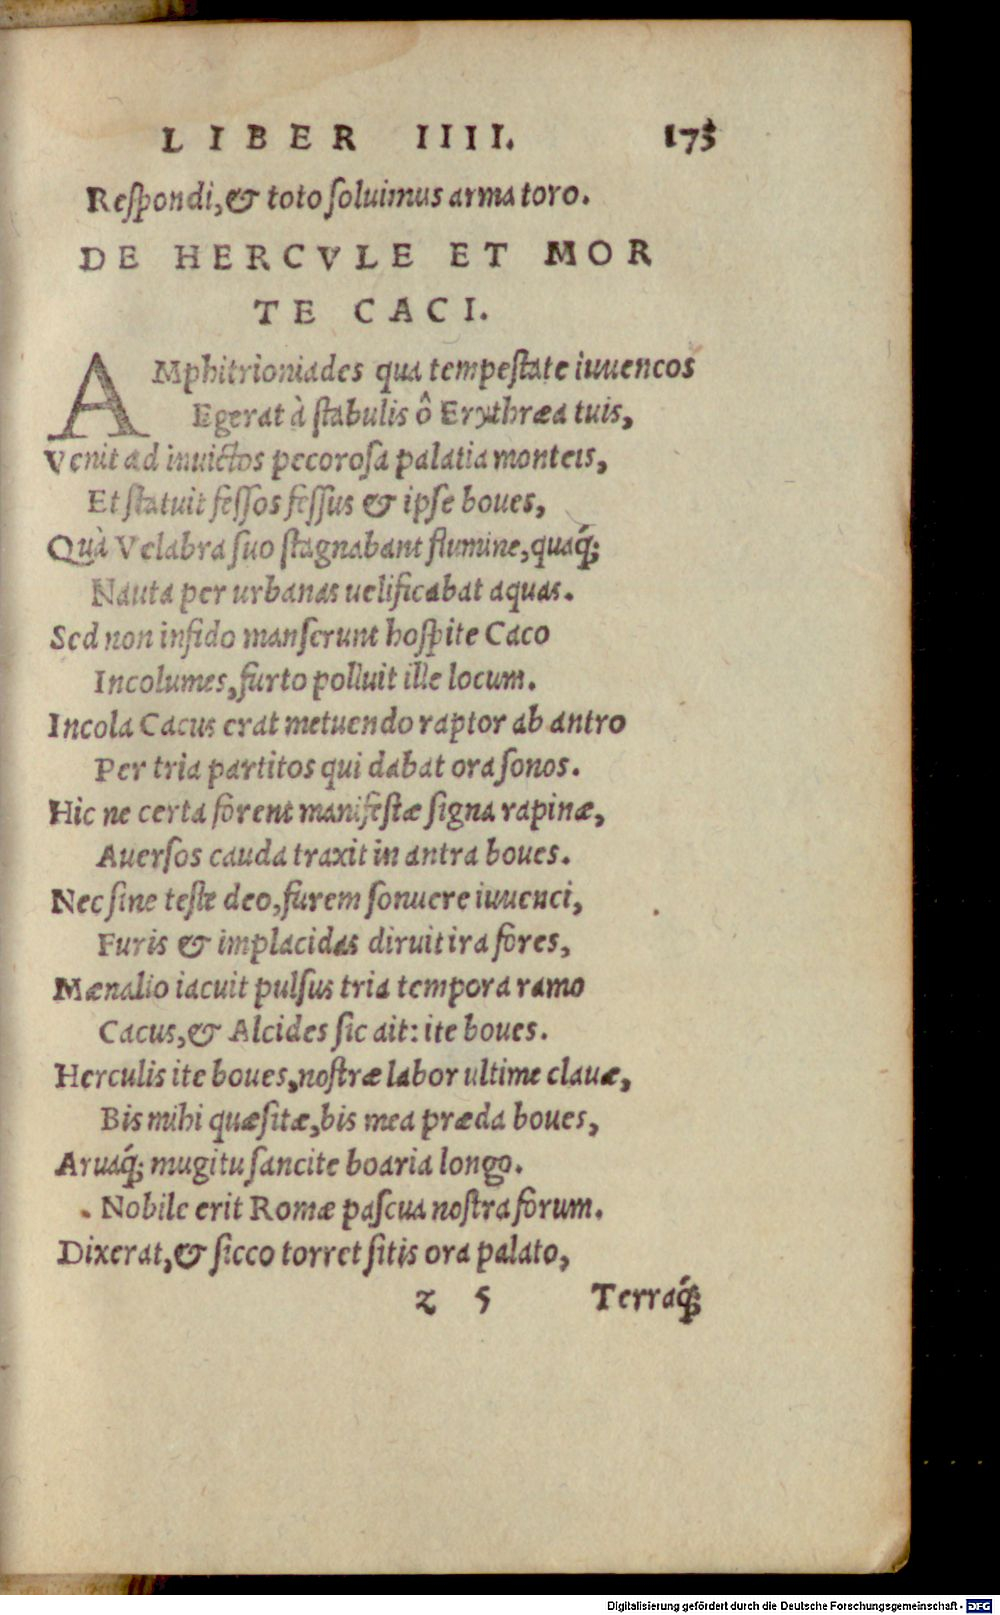 LIBER IIII. 175
Reſpondi,& toto ſoluimus arma toro.
DE HERCVLE ET MOR
TE CACI.
AMphitrioniades qua tempeſtate iuuencos
Egerat à ſtabulis ô Erythræa tuis,
Venit ad inuictos pecoroſa palatia monteis,
Et ſtatuit feſſos feſſus & ipſe boues,
Quà Velabra ſuo ſtagnabant flumine,quaq́;
Nauta per urbanas uelificabat aquas.
Sed non infido manſerunt hoſpite Caco
Incolumes,furto polluit ille locum.
Incola Cacus erat metuendo raptor ab antro
Per tria partitos qui dabat ora ſonos.
Hic ne certa forent manifeſtæ ſigna rapinæ,
Auerſos cauda traxit in antra boues.
Nec ſine teſte deo,furem ſonuere iuuenci,
Furis & implacidas diruit ira fores,
Mænalio iacuit pulſus tria tempora ramo
Cacus,& Alcides ſic ait: ite boues.
Herculis ite boues,noſtræ labor ultime clauæ,
Bis mihi quæſitæ,bis mea præda boues,
Aruaq́; mugitu ſancite boaria longo.
Nobile erit Romæ paſcua noſtra forum.
Dixerat,& ſicco torret ſitis ora palato,
z 5 Terraq́;
Digitalisierung gefördert durch die Deutsche Forschungsgemeinschaft - DFG